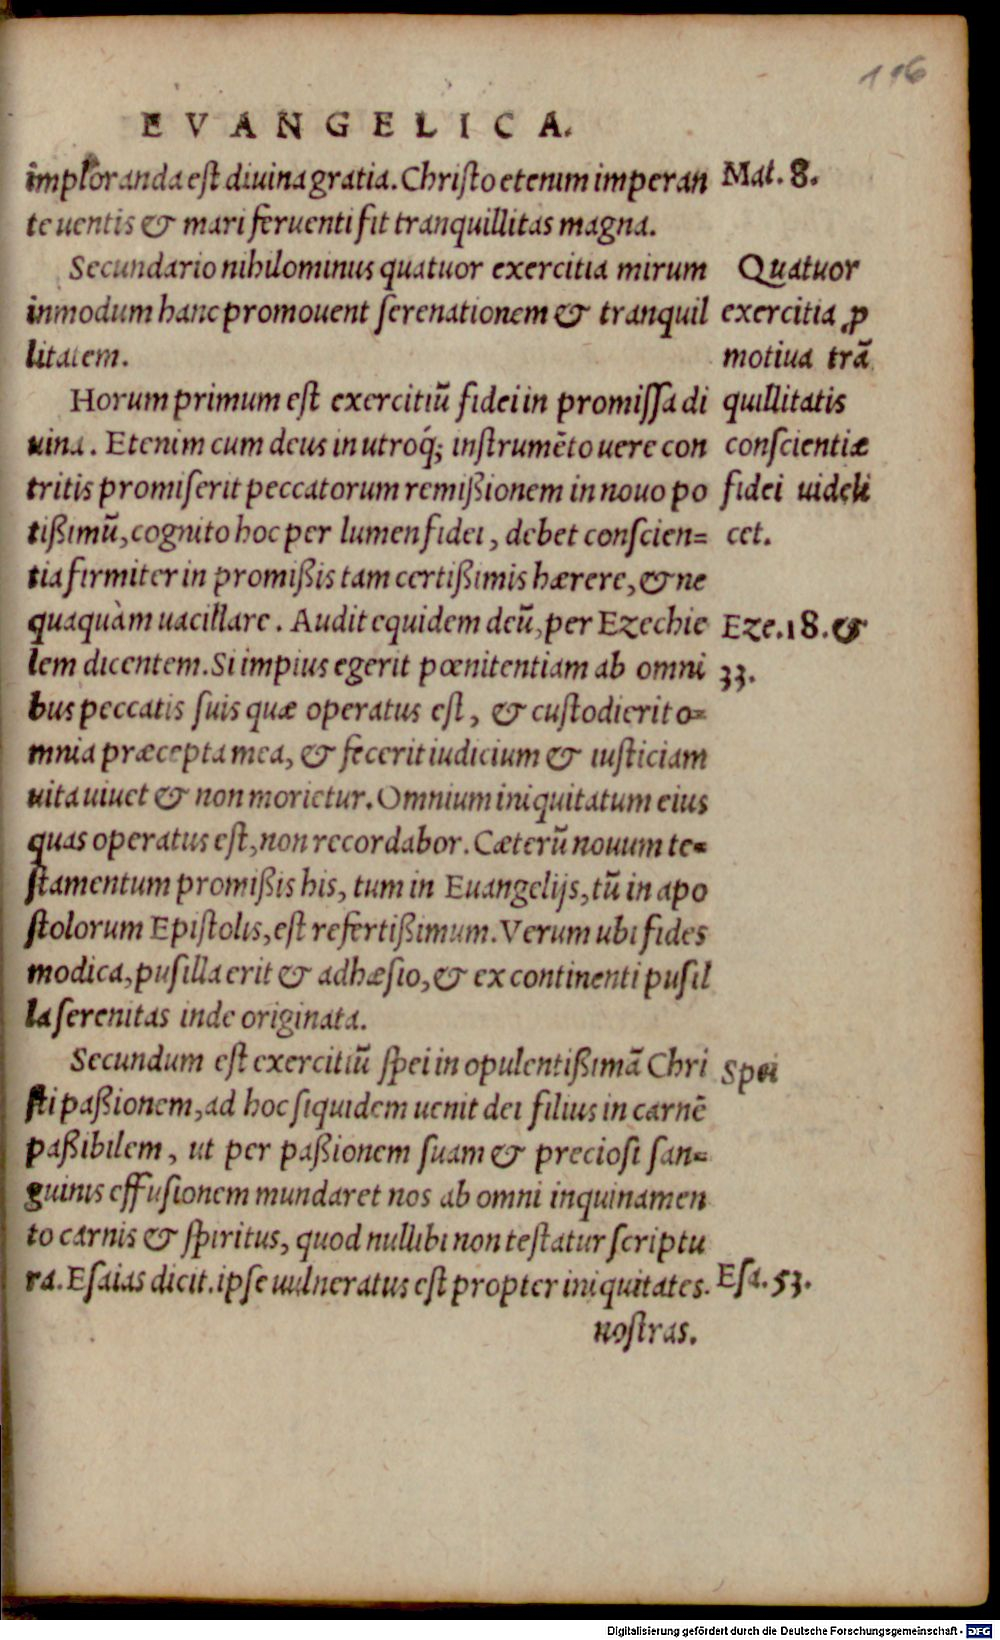 116
EVANGELICA.
imploranda est diuina gratia. Christo etenim imperan
te uentis & mari feruenti fit tranquillitas magna.
Mat. 8.
Secundario nihilominus quatuor exercitia mirum
inmodum hanc promouent serenationem & tranquil
litatem.
Horum primum est exercitiũ fidei in promissa di
uina. Etenim cum deus in utroq́; instrumẽto uere con
tritis promiserit peccatorum remißionem in nouo po
tißimũ, cognito hoc per lumen fidei, debet conscien=
tia firmiter in promißis tam certißimis hærere, & ne
quaquàm uacillare. Audit equidem deũ, per Ezechie
lem dicentem. Si impius egerit pœnitentiam ab omni
bus peccatis suis quæ operatus est, & custodierit o=
mnia præcepta mea, & fecerit iudicium & iusticiam
uita uiuet & non morietur. Omnium iniquitatum eius
quas operatus est, non recordabor. Cæterũ nouum te=
stamentum promißis his, tum in Euangelijs, tũ in apo
stolorum Epistolis, est refertißimum. Verum ubi fides
modica, pusilla erit & adhæsio, & ex continenti pusil
la serenitas inde originata.
Quatuor
exercitia ꝓ
motiua trã
quillitatis
conscientiæ
fidei uideli
cet.
Eze. 18. &
33.
Secundum est exercitiũ spei in opulentißimã Chri
sti paßionem, ad hoc siquidem uenit dei filius in carnẽ
paßibilem, ut per paßionem suam & preciosi san=
guinis effusionem mundaret nos ab omni inquinamen
to carnis & spiritus, quod nullibi non testatur scriptu
ra. Esaias dicit. ipse uulneratus est propter iniquitates.
Spei
Esa. 53.
nostras.
Digitalisierung gefördert durch die Deutsche Forschungsgemeinschaft - DFG